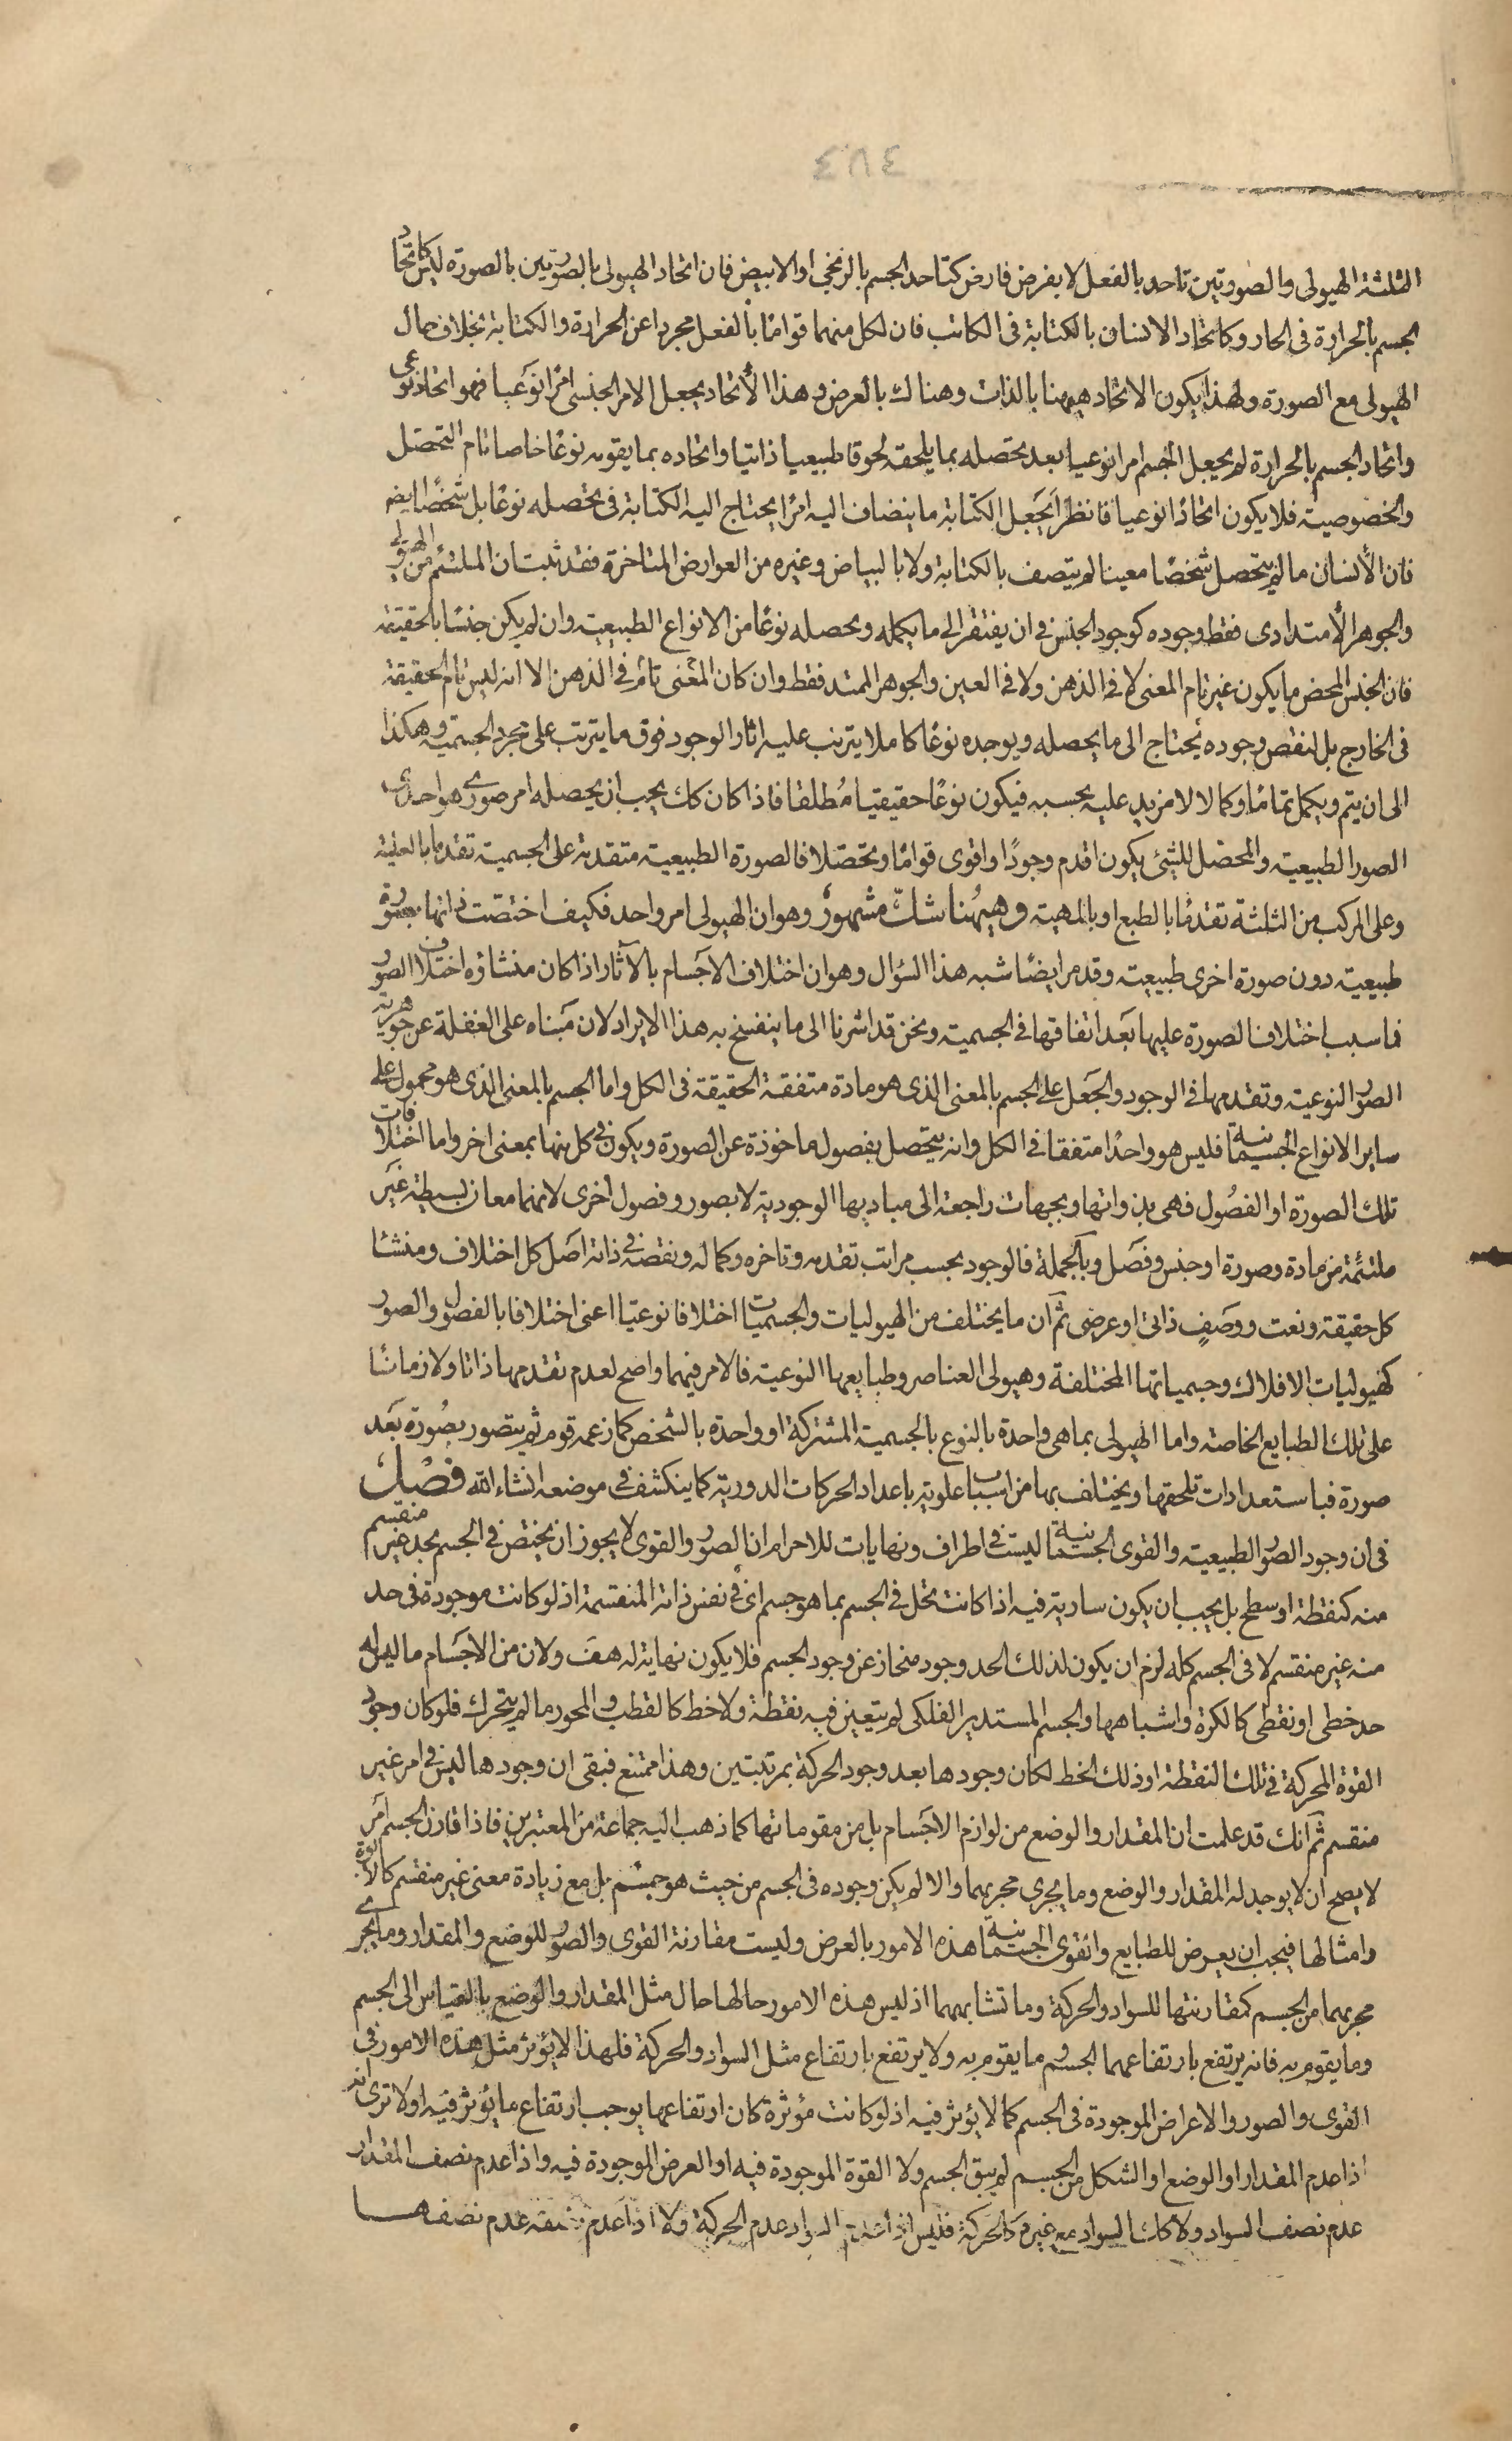 ٤٨٤
الثلثة الهيولى والصورتين تاحد بالفعل لا بفرض فارض كتاحد الجسم بالزنجى او الابيض فان اتحاد الهيولى بالصورتين بالصورة ليس كاتحاد
الجسم بالحرارة فى الحار وكاتحاد الانسان بالكتابة فى الكاتب فان لكل منهما قواما بالفعل مجردا عن الحرارة والكتابة بخلاف حال
الهيولى مع الصورة ولهذا يكون الاتحاد هيهنا بالذات وهناك بالعرض وهذا الاتحاد يجعل الامر الجنسى امرا نوعيا فهو اتحاد نوعى
واتحاد الجسم بالحرارة لم يجعل الجسم امرا نوعيا بعد تحصله بما يلحقه لحوقا طبيعيا ذاتيا واتحاده بما يقومه نوعا خاصا تام التحصل
والخصوصية فلا يكون اتحادا نوعيا فانظر ايجعل الكتابة ما ينضاف اليه امرا يحتاج اليه الكتابة فى تحصله نوعا بل شخصا ايضا
فان الانسان ما لم يتحصل شخصا معينا لم يتصف بالكتابة ولا بالبياض وغيره من العوارض المتاخرة فقد ثبت ان الملتئم من الهيولى
والجوهر الامتدادى فقط وجوده كوجود الجنس فى ان يفتقر الى ما يكمله ويحصله نوعا من الانواع الطبيعية وان لم يكن جنسا بالحقيقة
فان الجنس المحض ما يكون غير تام المعنى لا فى الذهن ولا فى العين والجوهر الممتد فقط وان كان المعنى تام فى الذهن الا انه ليس تام الحقيقة
فى الخارج بل لنقص وجوده يحتاج الى ما يحصله ويوجده نوعا كاملا يترتب عليه اثار الوجود فوق ما يترتب على مجرد الجسمية وهكذا
الى ان يتم ويكمل تماما وكمالا لا مزيد عليه بحسبه فيكون نوعا حقيقيا مطلقا فاذا كان كك يجب ان يحصله امر صورى هو احدى
الصور الطبيعية والمحصل للشئ يكون اقدم وجودا واقوى قواما وتحصلا فالصورة الطبيعية متقدمة على الجسمية تقدما بالعلية
وعلى المركب من الثلثة تقدما بالطبع او بالمهية وهيهنا شك مشهور وهو ان الهيولى امر واحد فكيف اختصت ذاتها بصورة
طبيعية دون صورة اخرى طبيعية وقد مر ايضا شبه هذا السؤال وهو ان اختلاف الاجسام بالآثار اذا كان منشاؤه اختلاف الصور
فما سبب اختلاف الصورة عليها بعد اتفاقها فى الجسمية ونحن قد اشرنا الى ما ينفسخ به هذا الايراد لان مبناه على الغفلة عن جوهرية
الصور النوعية وتقدمها فى الوجود والجعل على الجسم بالمعنى الذى هو مادة متفقة الحقيقة فى الكل واما الجسم بالمعنى الذى هو محمول على
ساير الانواع الجسمانية فليس هو واحدا متفقا فى الكل وانه يتحصل بفصول ماخوذة عن الصورة ويكون فى كل منها بمعنى اخر واما اختلافات
تلك الصورة او الفصول فهى بذواتها وبجهات راجعة الى مباديها الوجودية لا بصور وفصول اخرى لانهما معان بسيطة غير
ملتئمة من مادة وصورة او جنس وفصل وبالجملة فالوجود بحسب مراتب تقدمه وتاخره وكماله ونقصه فى ذاته اصل كل اختلاف ومنشا
كل حقيقة ونعت ووصف ذاتى او عرضى ثم ان ما يختلف من الهيوليات والجسميات اختلافا نوعيا اعنى اختلافا بالفصول والصور
كهيوليات الافلاك وجسمياتها المختلفة وهيولى العناصر وطبايعها النوعية فالامر فيهما واضح لعدم تقدمها ذاتا ولا زمانا
على تلك الطبايع الخاصة واما الهيولى بما هى واحدة بالنوع بالجسمية المشتركة او واحدة بالشخص كما زعمه قوم ثم يتصور بصورة بعد
صورة فباستعدادات تلحقها ويختلف بها من اسباب علوية باعداد الحركات الدورية كما ينكشف فى موضعه انشاء الله فصل
فى ان وجود الصور الطبيعية والقوى الجسمانية ليست فى اطراف ونهايات للاجرام ان الصور والقوى لا يجوز ان يختص فى الجسم بحد غير منقسم
منه كنقطة او سطح بل يجب ان يكون سارية فيه اذا كانت تحل فى الجسم بما هو جسم اى فى نفس ذاته المنقسمة اذ لو كانت موجودة فى حد
منه غير منقسم لا فى الجسم كله لزم ان يكون لذلك الحد وجود منحاز عن وجود الجسم فلا يكون نهاية له هف ولان من الاجسام ما ليس له
حد خطى او نقطى كالكرة واشباهها والجسم المستدير الفلكى لم يتعين فيه نقطة ولا خط كالقطب والمحور ما لم يتحرك فلو كان وجود
القوة المحركة فى تلك النقطة او ذلك الخط لكان وجودها بعد وجود الحركة بمرتبتين وهذا ممتنع فبقى ان وجودها ليس فى امر غير
منقسم ثم انك قد علمت ان المقدار والوضع من لوازم الاجسام بل من مقوماتها كما ذهب اليه جماعة من المعتبرين فاذا قارن الجسم امر
لا يصح ان لا يوجد له المقدار والوضع وما يجرى مجريهما والا لم يكن وجوده فى الجسم من حيث هو جسم بل مع زيادة معنى غير منقسم كالابوة
وامثالها فيجب ان يعرض للطبايع والقوى الجسمانية هذه الامور بالعرض وليست مقارنة القوى والصور للوضع والمقدار وما يجرى
مجريهما من الجسم كمقارنتها للسواد والحركة وما تشابههما اذ ليس هذه الامور حالها حال مثل المقدار والوضع بالقياس الى الجسم
وما يقوم به فانه يرتفع بارتفاعهما الجسم وما يقوم به ولا يرتفع بارتفاع مثل السواد والحركة فلهذا لا يؤثر مثل هذه الامور فى
القوى والصور والاعراض الموجودة فى الجسم كما لا يؤثر فيه اذ لو كانت مؤثرة كان ارتفاعها يوجب ارتفاع ما يؤثر فيه اولا ترى انه
اذا عدم المقدار او الوضع او الشكل من الجسم لم يبق الجسم ولا القوة الموجودة فيه او العرض الموجودة فيه واذا عدم نصف المقدار
عدم نصف السواد ولا كك السواد مع غيره كالحركة فليس اذا عدم السواد عدم الحركة ولا اذا عدم نصفه عدم نصفها